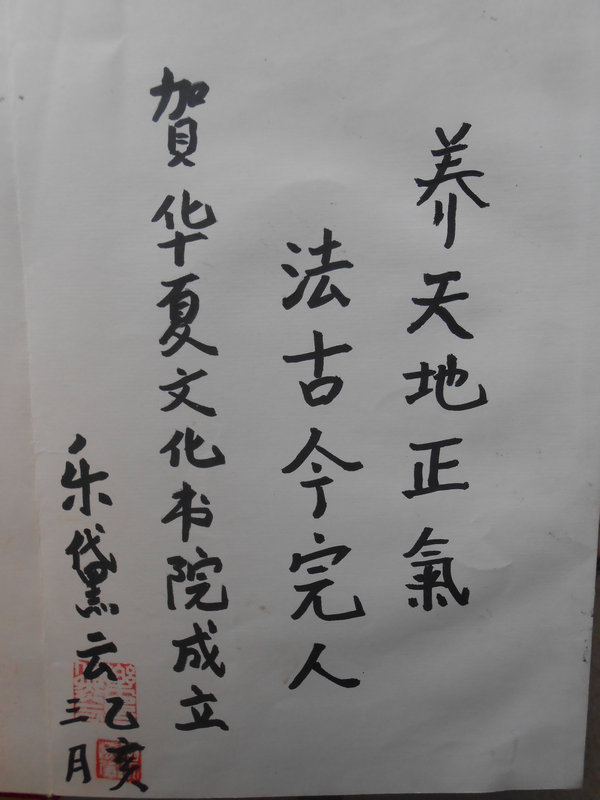 养天地正氣
法古今完人
賀华夏文化书院成立
乐黛云
乙亥
三月